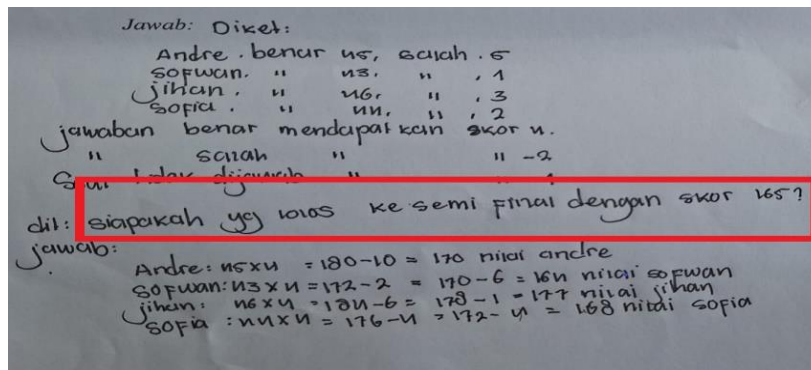 Jawab: Diket:
Andre . benar 45, salah . 5
Sofwan. " 43. " , 1
Jihan . " 46, " , 3
Sofia . " 44, " , 2
jawaban benar mendapat kan skor 4.
" salah " " -2
tidak dijawab "
dit: siapakah yg lolos ke semi final dengan skor 165?
jawab:
Andre: 45x4 = 180-10 = 170 nilai andre
Sofwan: 43x4 = 172-2 = 170-6 = 164 nilai sofwan
Jihan: 46x4 = 184-6 = 178-1 = 177 nilai jihan
Sofia : 44x4 = 176-4 = 172-4 = 168 nilai sofia